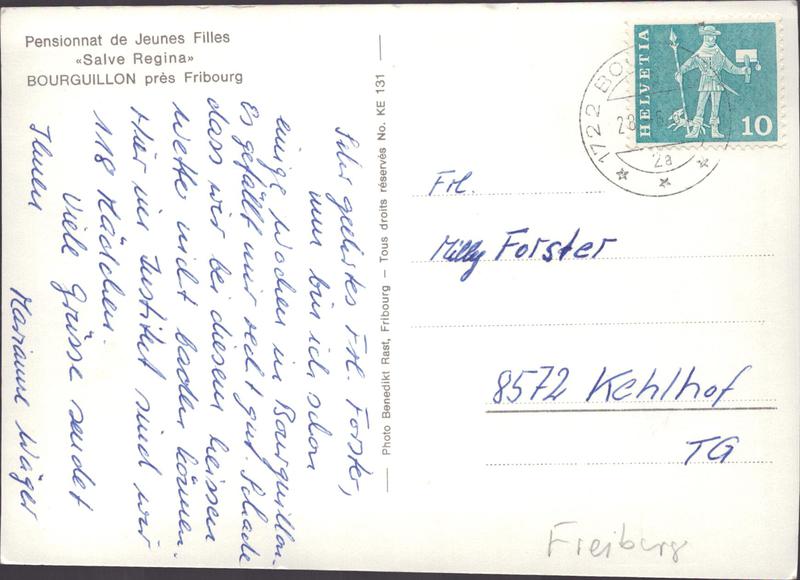 Pensionnat de Jeunes Filles
«Salve Regina»
BOURGUILLON près Fribourg
Sehr geehrtes Frl. Forster,
nun bin ich schon
einige Wochen in Bourguillon.
Es gefällt mir recht gut. Schade
dass wir bei diesem heissen
Wetter nicht baden können.
Hier im Institut sind wir
118 Mädchen.
Viele Grüsse sendet
Ihnen
Marianne Wäger
Photo Benedikt Rast, Fribourg – Tous droits réservés No. KE 131
HELVETIA
10
1722 BO
28
2a
Frl.
Milly Forster
8572 Kehlhof
TG
Freiburg